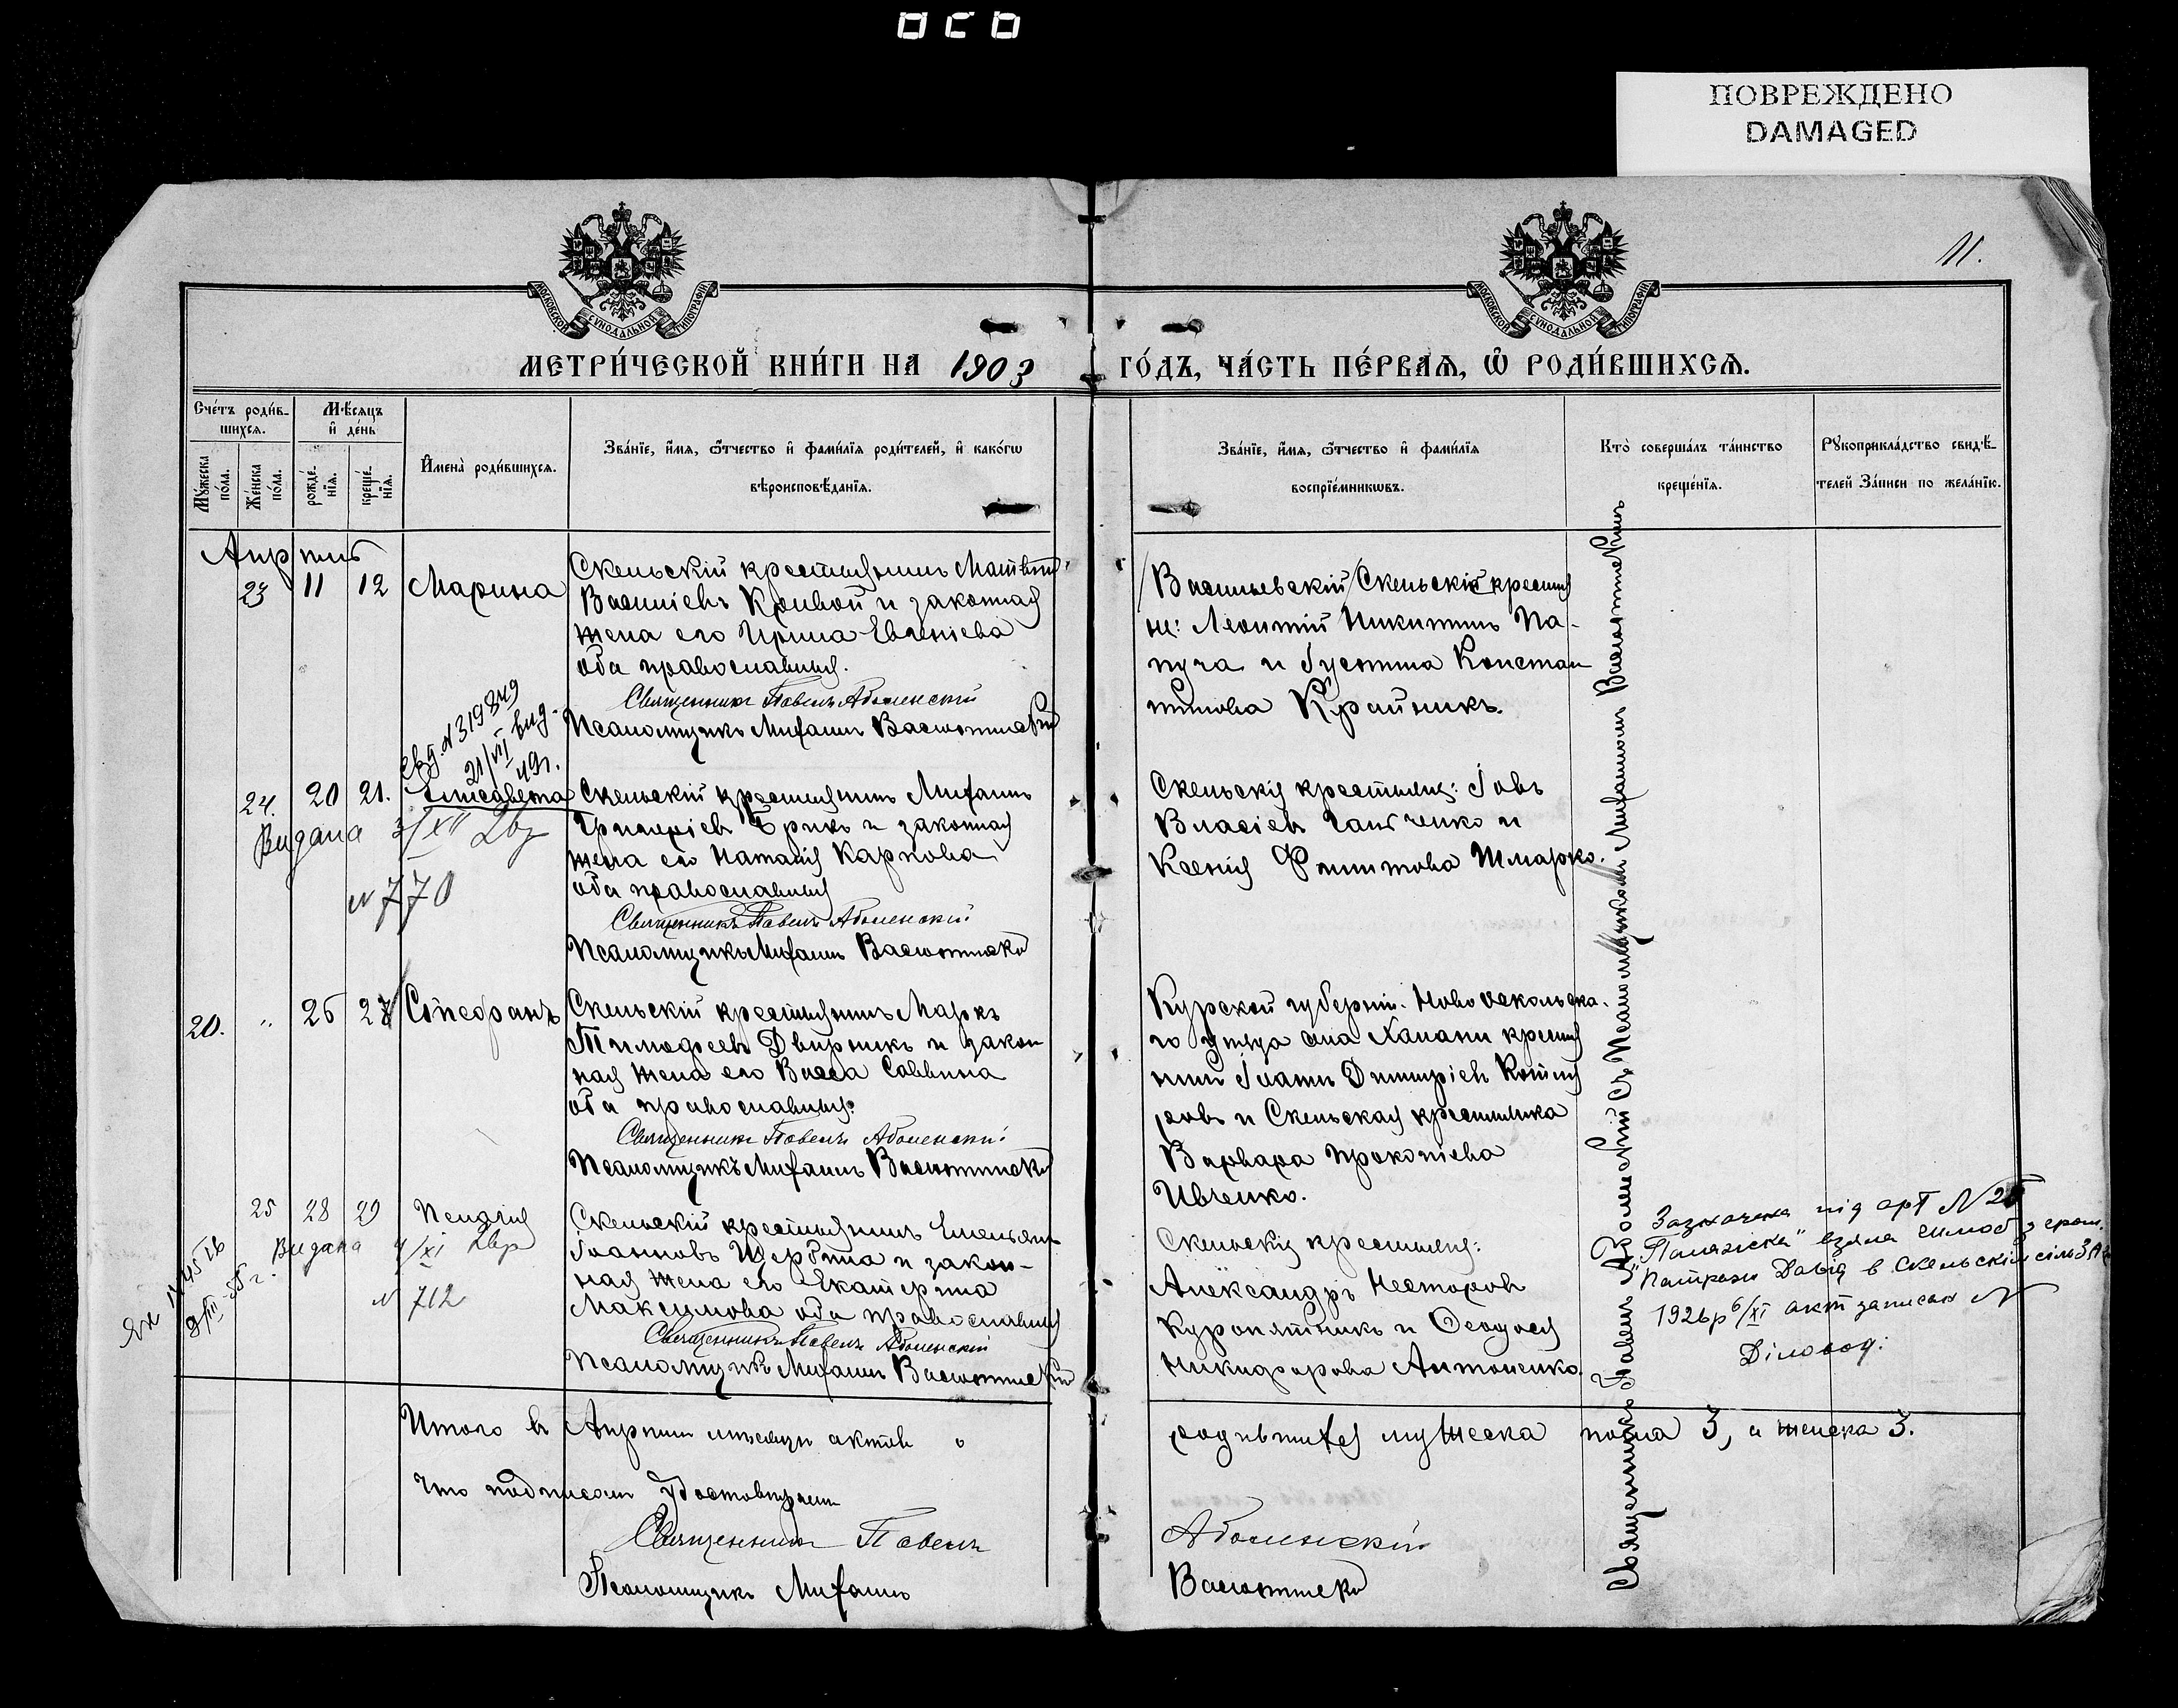 ПОВРЕЖДЕНО
DAMAGED
11.
МОСКОВСКОЙ СѴНОДАЛЬНОЙ ТИПОГРАФІИ
МОСКОВСКОЙ СѴНОДАЛЬНОЙ ТИПОГРАФІИ
МЕТРИ́ЧЕСКОЙ КНИ́ГИ НА 1903 ГО́ДЪ, ЧА́СТЬ ПЕ́РВАѦ, Ѡ҆ РОДИ́ВШИХСѦ.
Сче́тъ роди́в-
шихсѧ.
Мꙋ́жеска по́ла.
Же́нска по́ла.
Мѣ́сѧцъ
и҆ де́нь
рожде́нїѧ.
креще́нїѧ.
И҆мена̀ роди́вшихсѧ.
Зва́нїе, и҆́мѧ, ѻ҆́тчество и҆ фами́лїѧ роди́телей, и҆ како́гѡ
вѣроисповѣ́данїѧ.
Зва́нїе, и҆́мѧ, ѻ҆́тчество и҆ фами́лїѧ
воспрїе́мникѡвъ.
Кто̀ соверша́лъ та́инство
креще́нїѧ.
Рꙋкоприкла́дство свидѣ́-
телей За́писи по жела́нїю.
Апрѣль
23 11 12 Марина
Скельскій крестьянинъ Матвей
Василіевъ Кривой и законная
жена его Ирина Евгеніева
оба православныя.
Священникъ Павелъ Аболенскій
Псаломщикъ Михаилъ Васютинскій
Васильевскій Скельскія крестья
не: Леонтій Никитинъ Па-
пуча и Іустина Констан
тинова Крайникъ.
свд. N 319849
21/VII вид.
49 г.
24. 20 21. Елисавета
Видана 3/XII Двр
N 770
Скельскій крестьянинъ Михаилъ
Григоріевъ Ерикъ и законная
жена его Наталія Карпова
оба православныя
Священникъ Павелъ Аболенскій
Псаломщикъ Михаилъ Васютинскій
Скельскія крестьяне: Іовъ
Власіевъ Гальченко и
Ксенія Филиппова Шмарко.
20. „ 26 27 Стефанъ
Скельскій крестьянинъ Маркъ
Тимофеевъ Двирникъ и закон
ная жена его Васса Саввина
оба православныя.
Священникъ Павелъ Аболенскій
Псаломщикъ Михаилъ Васютинскій
Курской губерніи Новооскольска-
го уѣзда села Халани крестья
нинъ Іоаннъ Димитріевъ Котля
ровъ и Скельская крестьянка
Варвара Прокопіева
Ивченко.
25 28 29 Пелагія
Видана 4/XI Двр
N 712
Скельскій крестьянинъ Емельянъ
Іоанновъ Щербина и закон-
ная жена его Екатерина
Максимова оба православныя
Священникъ Павелъ Аболенскій
Псаломщикъ Михаилъ Васютинскій
Скельскія крестьяне:
Александръ Несторовъ
Куропятникъ и Ѳеодосія
Никифорова Антоненко.
Зазначена під арт N 25
"Палажка" взяла шлюб з гром.
Давід в Скельскім
1926 р 6/XI акт записан N
Діловод:
Священникъ Павелъ Аболенскій съ Псаломщикомъ Михаиломъ Васютинскимъ
Итого въ Апрѣлѣ мѣсяцѣ актовъ родившихся мужеска пола 3, а женска 3.
Что подписомъ удостовѣряемъ
Священникъ Павелъ Аболенскій
Псаломщикъ Михаилъ Васютинскій